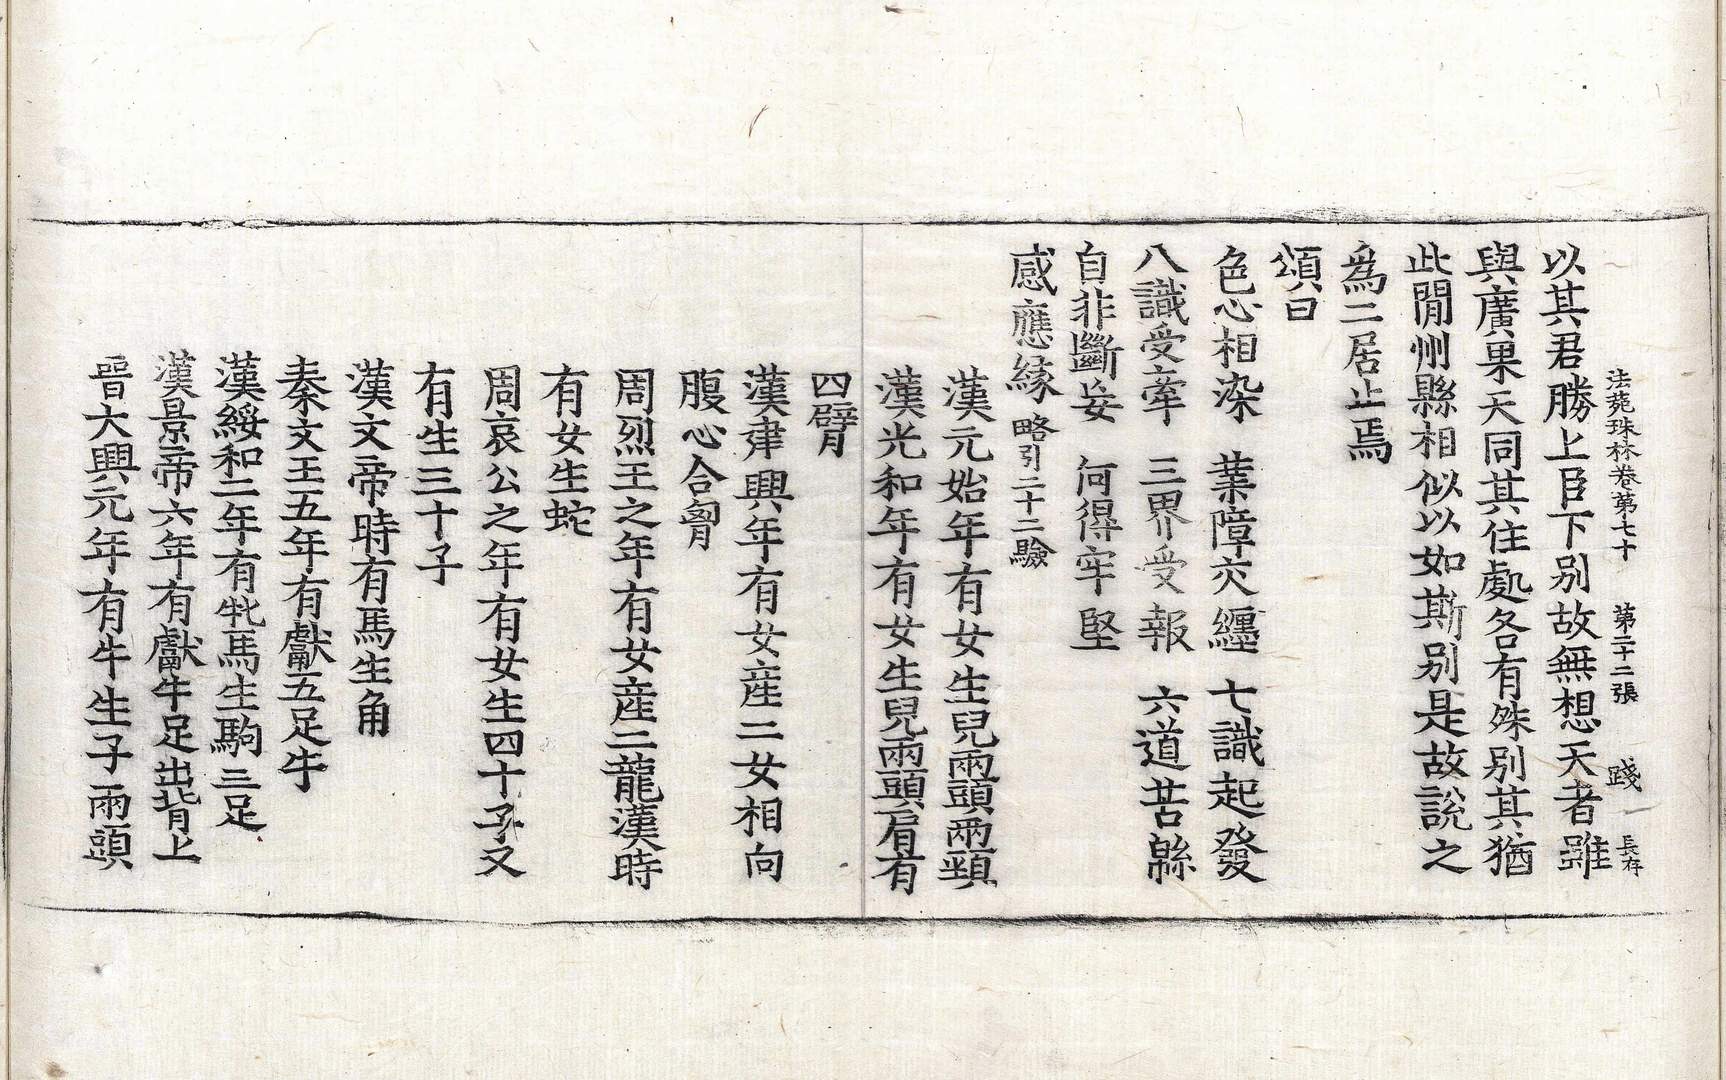 法菀珠林卷第七十 第二十二張 踐 長存
以其君勝上臣下别故無想天者雖
與廣果天同其住處各有殊别其猶
此閒州縣相似以如斯别是故說之
爲二居止焉
頌曰
色心相染 業障交纏 七識起發
八識受牽 三界受報 六道苦緜
自非斷妄 何得牢堅
感應緣 略引二十二驗
漢元始年有女生兒兩頭兩頸
漢光和年有女生兒兩頭肩有
四臂
漢建興年有女産二女相向
腹心合胷
周烈王之年有女産二龍漢時
有女生蛇
周哀公之年有女生四十子又
有生三十子
漢文帝時有馬生角
秦文王五年有獻五足牛
漢綏和二年有牝馬生駒三足
漢景帝六年有獻牛足出背上
晉大興元年有牛生子兩頭